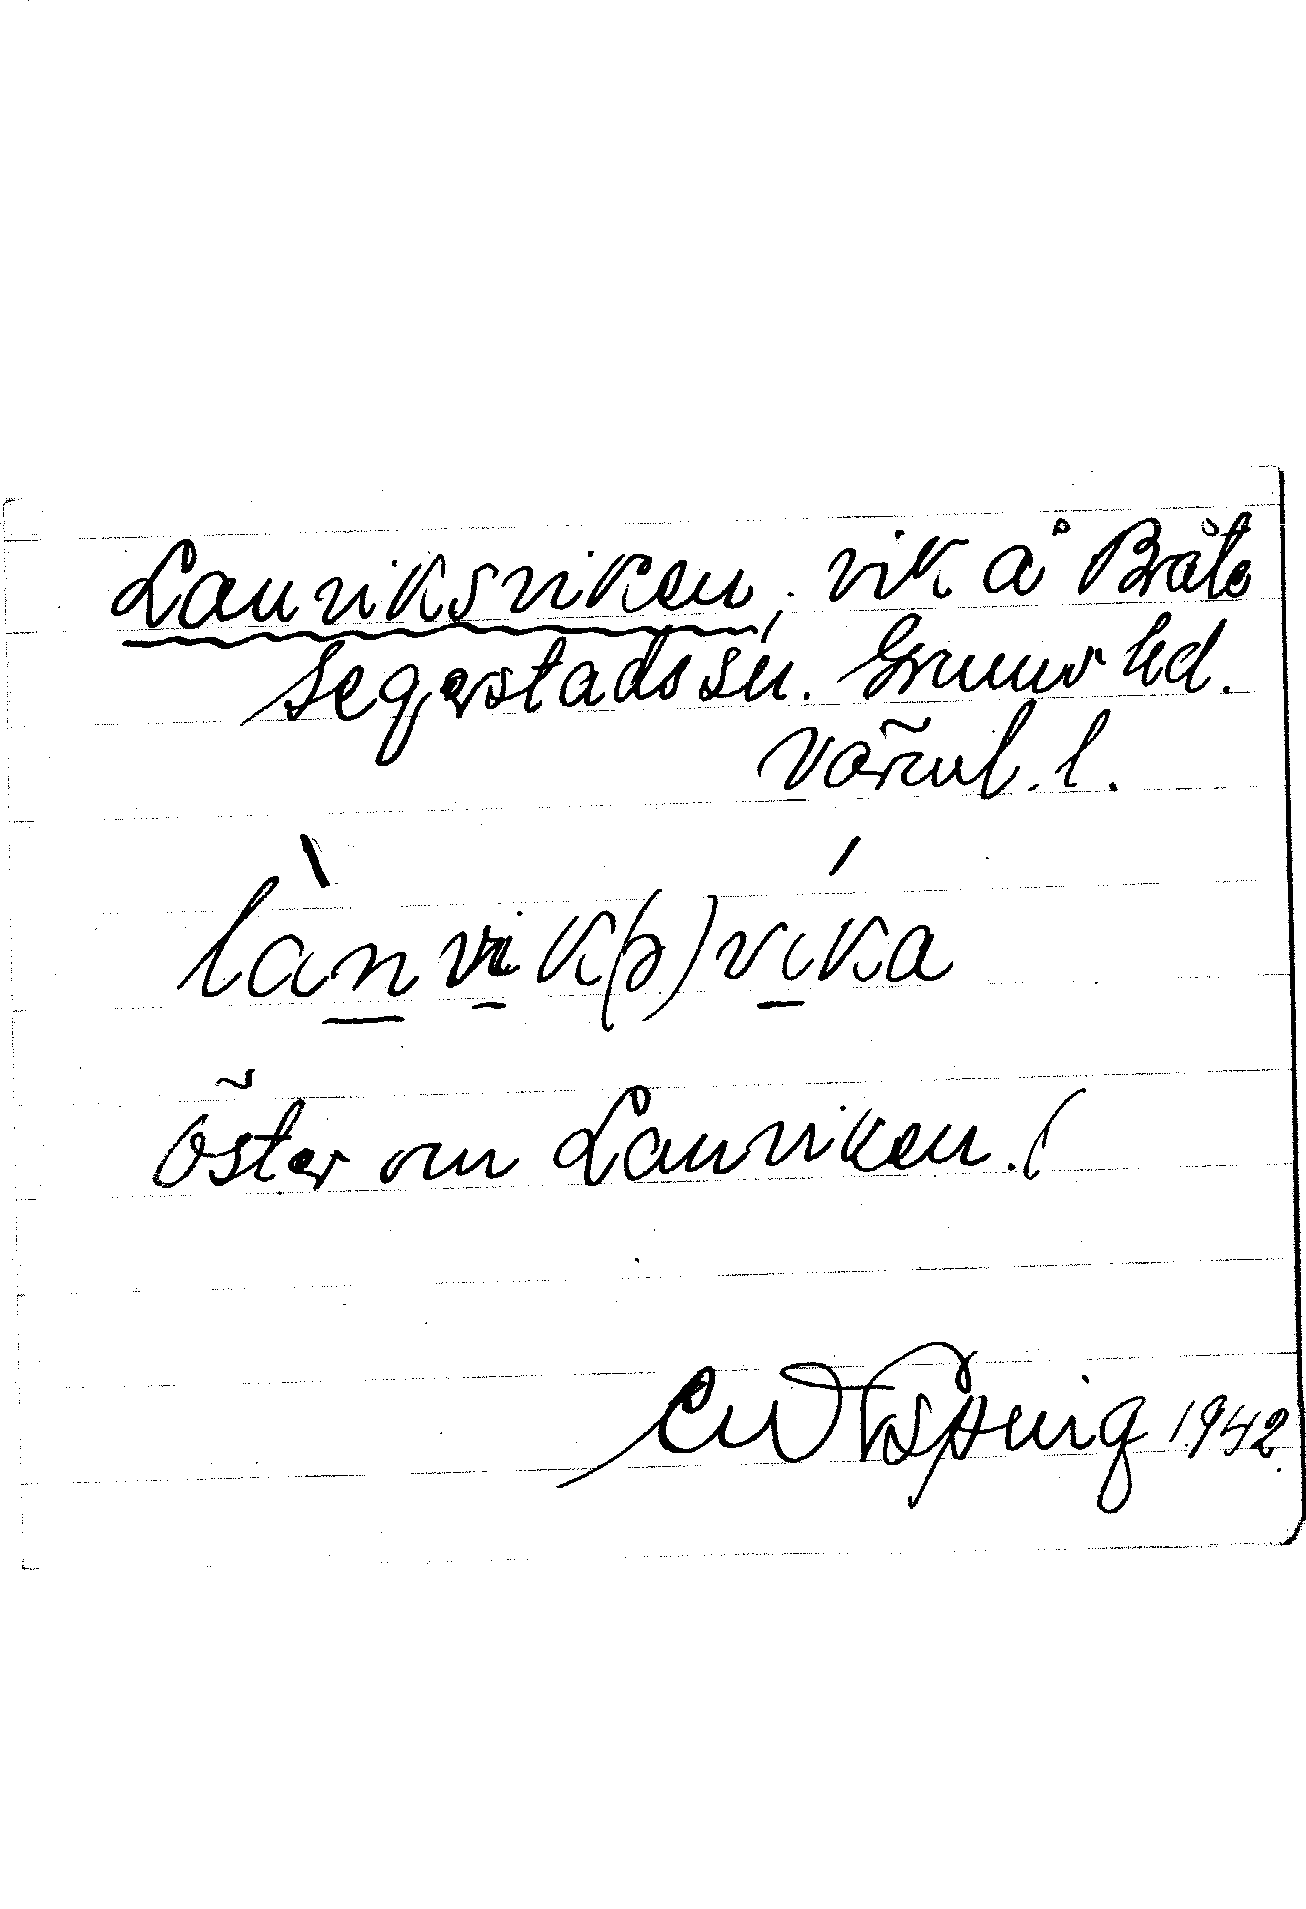 Lanviksviken, vik å Bråte
Segerstads sn. Grums hd.
Värml. l.
lànvik(s)víka
öster om Lanviken.
1942.